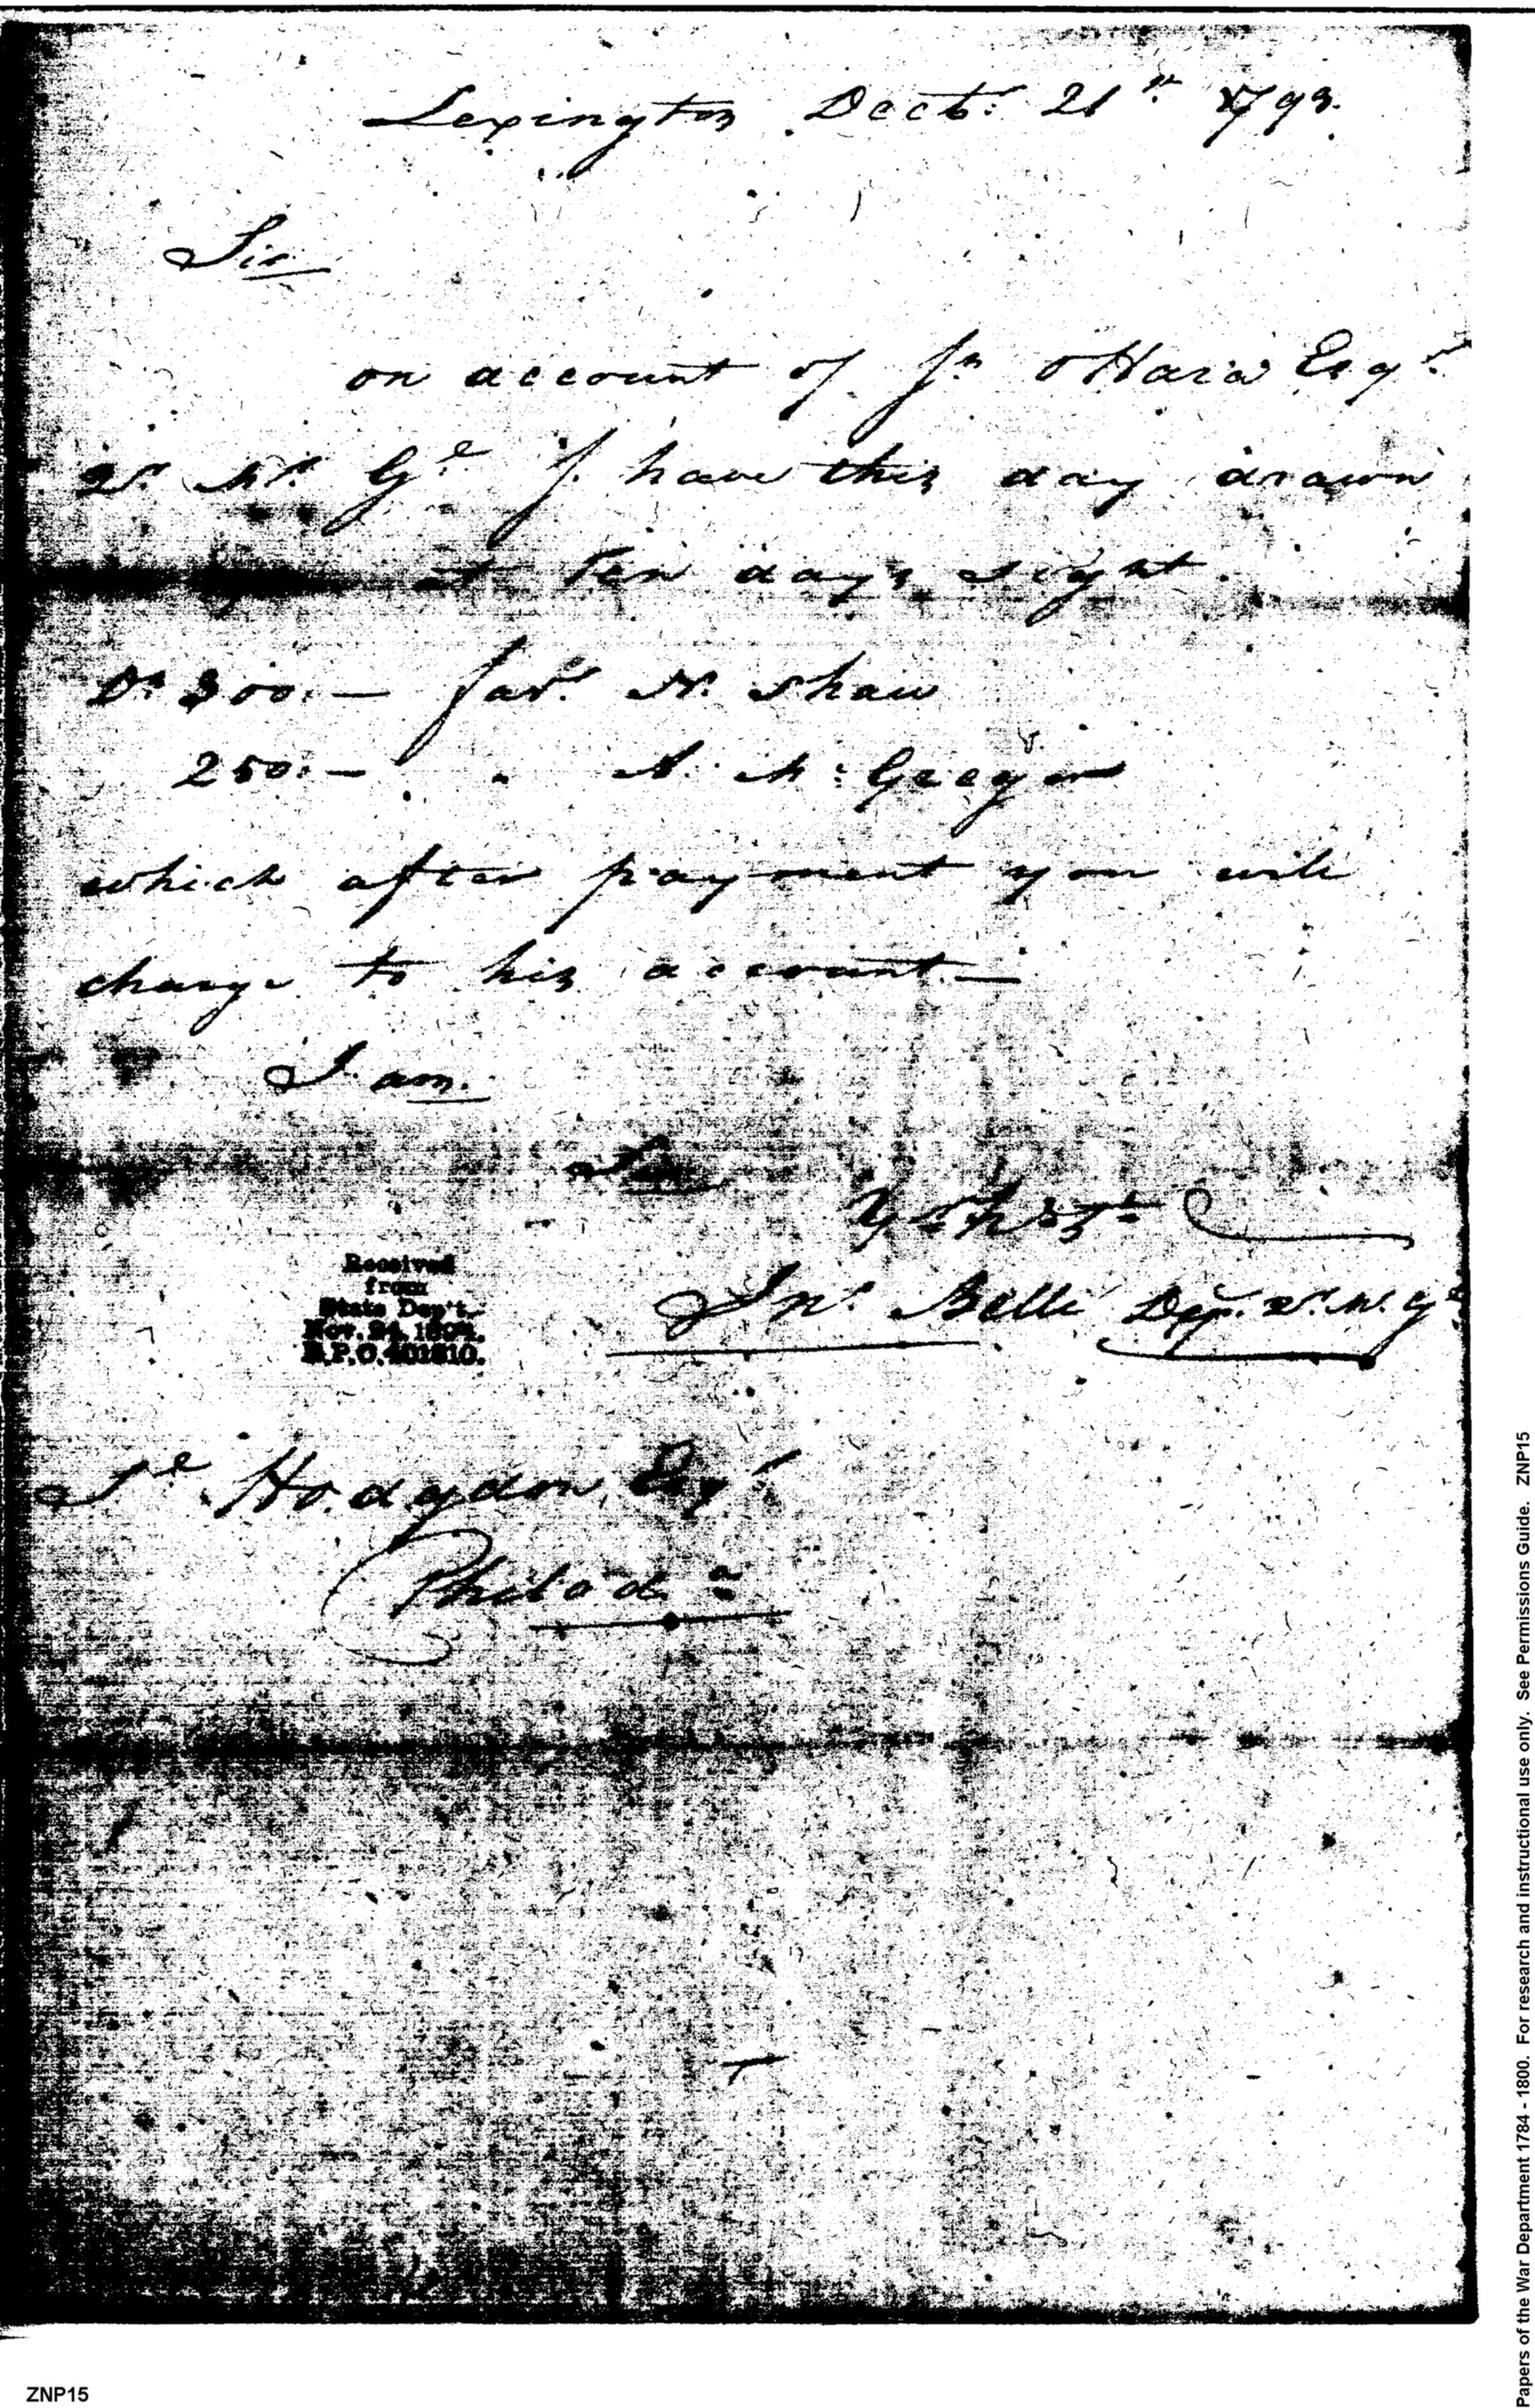 Lexington Decbr. 21st. 1793.
Sir
on account of Js OHara Esqr.
Qr. Mr. Gl. I have this day drawn
at ten days sight
Ds 300.— favr. N. Shaw
250.— " A. McGregor
which after payment you will
charge to his account.—
I am.
Sir
Jno. Belli Dep. Qr. M. Gl
Received
from
State Dep't.
Nov. 24, 1894.
R.P.O. 401810.
Sl Hodgdon Esqr
Philada
ZNP15
Papers of the War Department 1784 - 1800. For research and instructional use only. See Permissions Guide. ZNP15